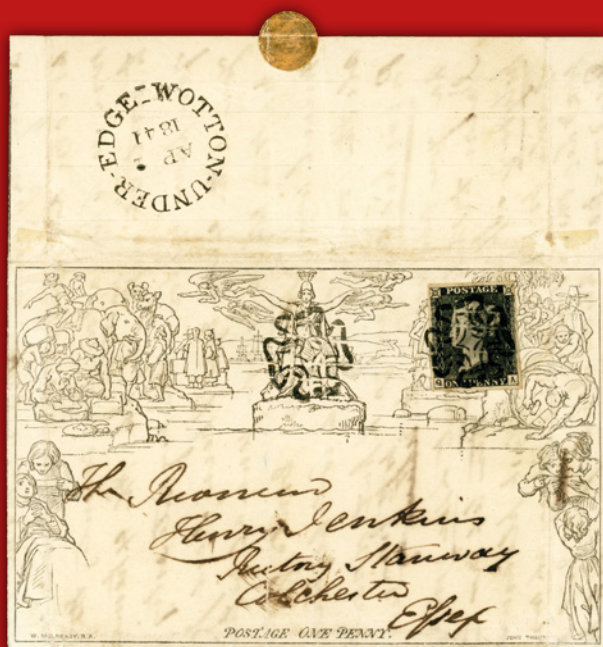 WOTTON-UNDER-EDGE
AP
1841
POSTAGE
ONE PENNY
The Reverend
Henry Jenkins
Rectory Stanway
Colchester
Essex
POSTAGE ONE PENNY.
W. MULREADY, R.A.
JOHN THOMPSON